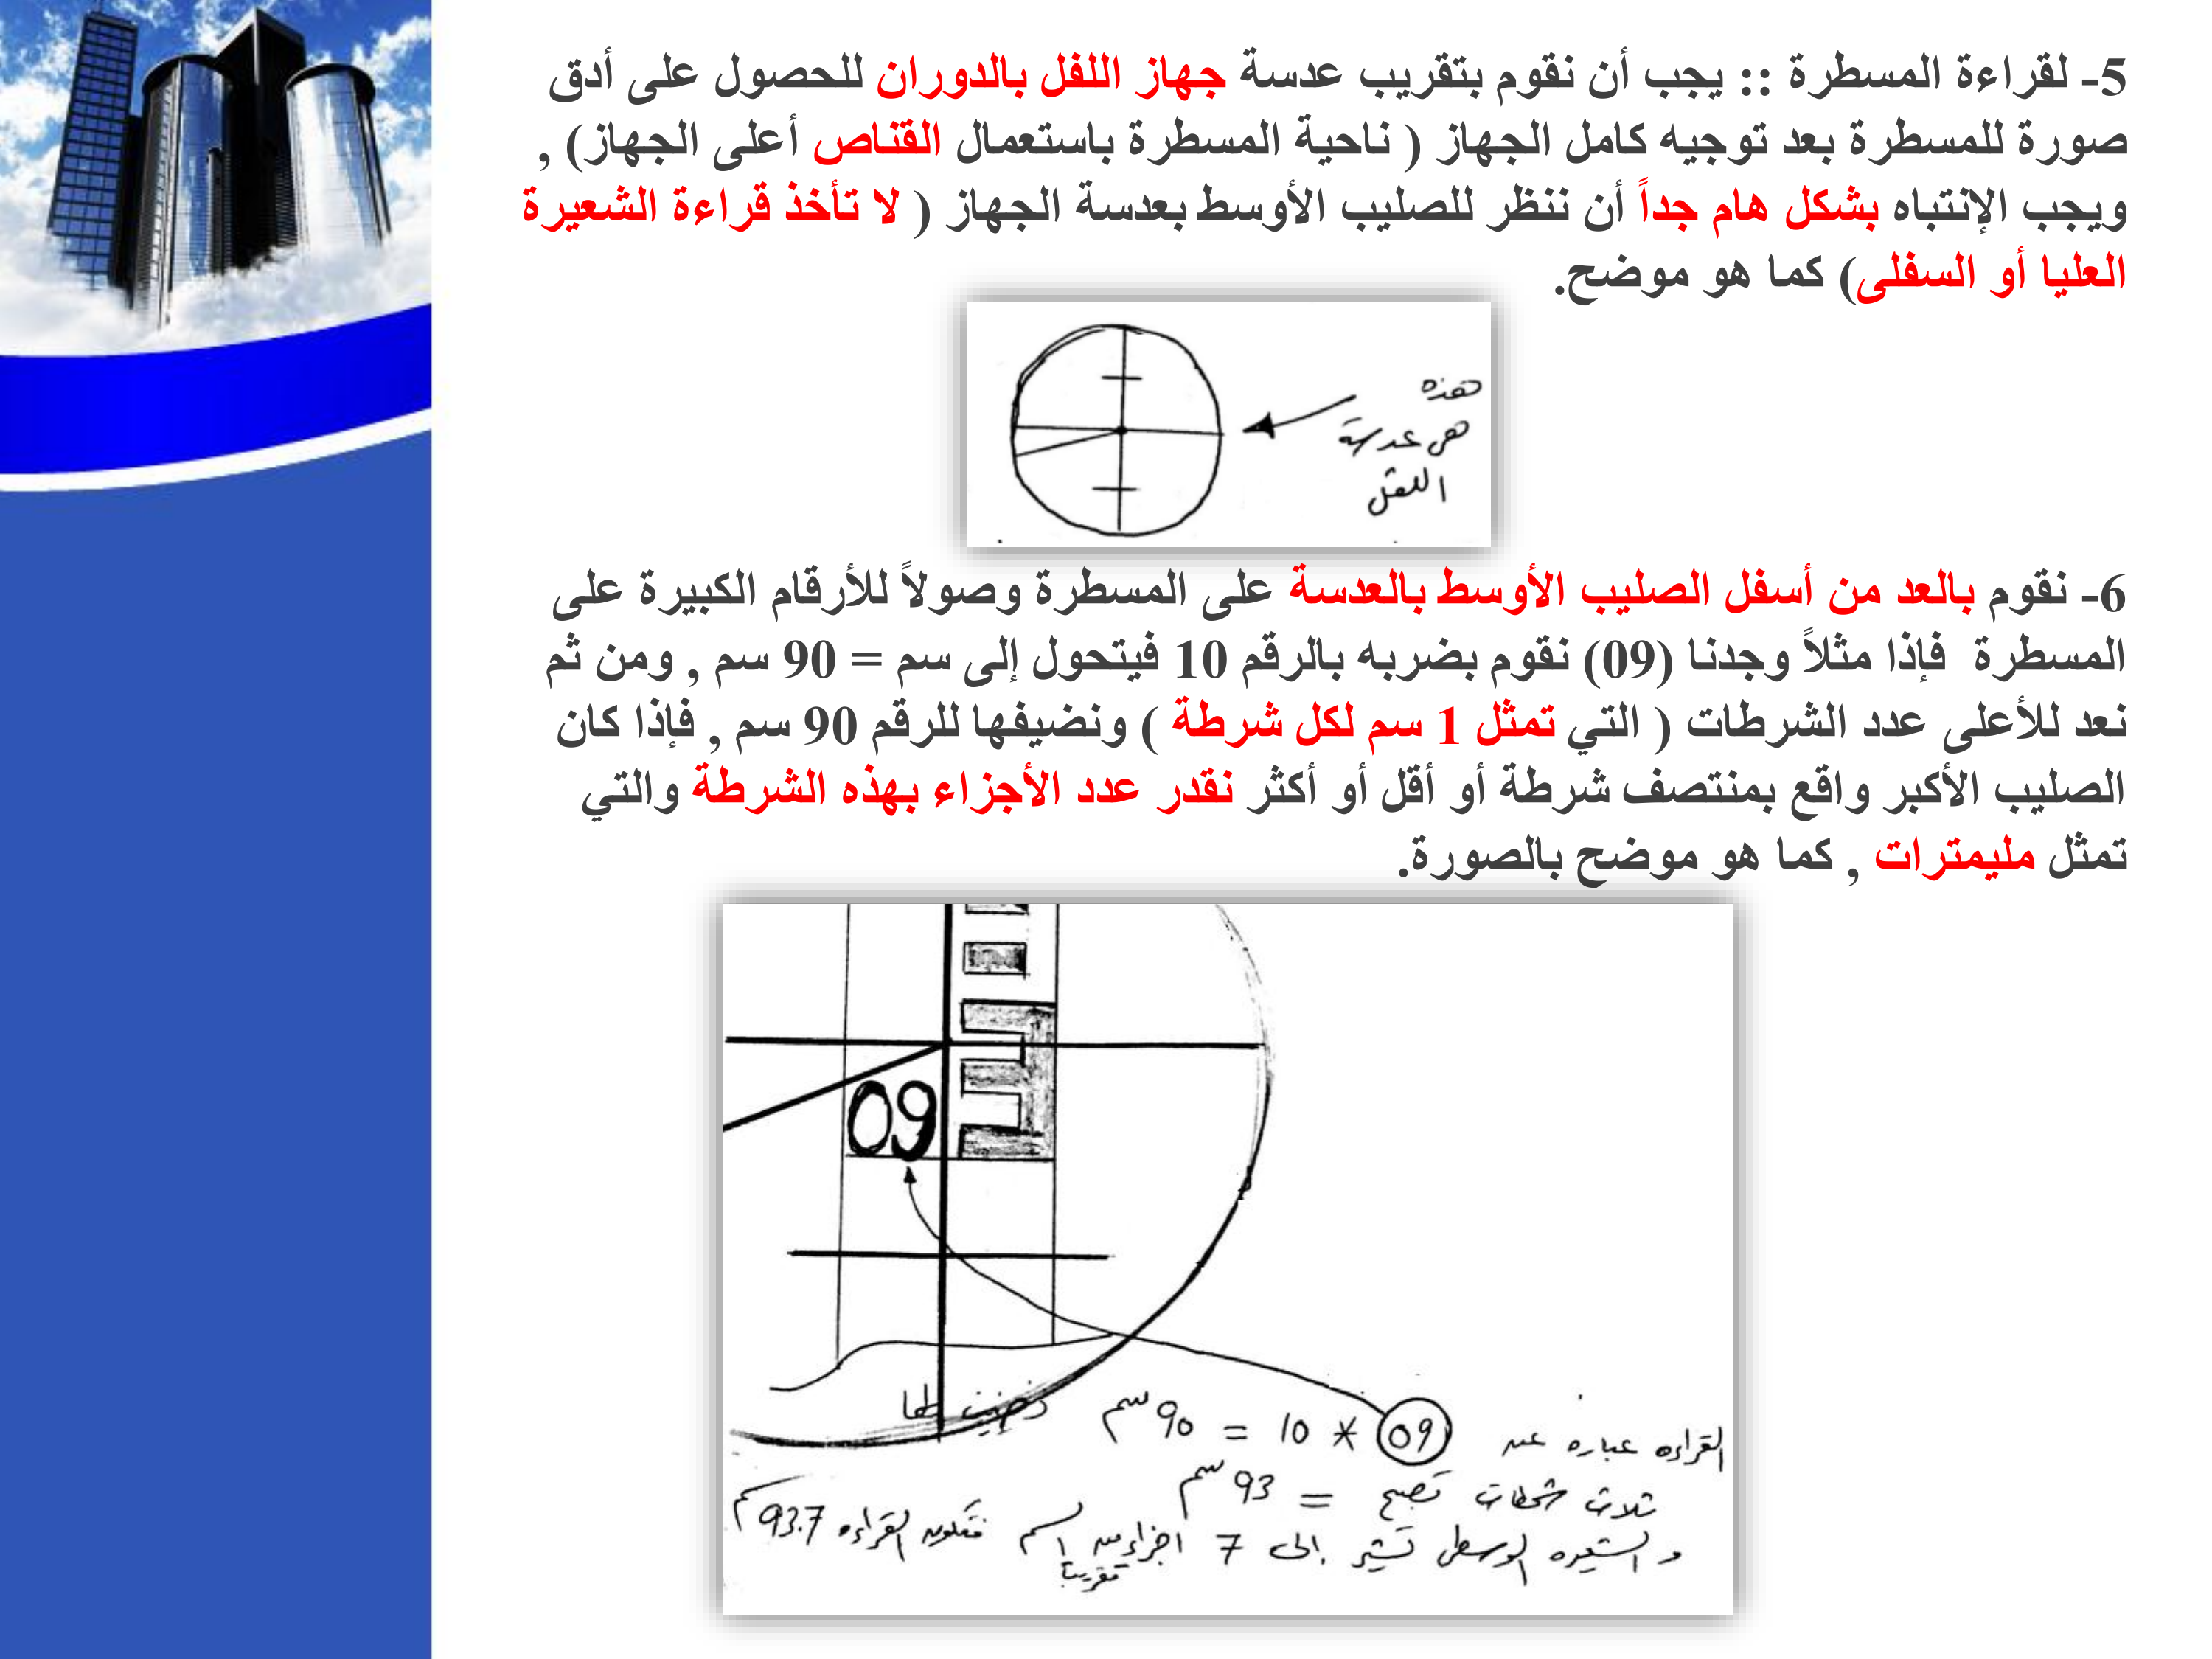 5- لقراءة المسطرة :: يجب أن نقوم بتقريب عدسة جهاز اللفل بالدوران للحصول على أدق
صورة للمسطرة بعد توجيه كامل الجهاز ( ناحية المسطرة باستعمال القناص أعلى الجهاز) ,
ويجب الإنتباه بشكل هام جداً أن ننظر للصليب الأوسط بعدسة الجهاز ( لا تأخذ قراءة الشعيرة
العليا أو السفلى) كما هو موضح.
هذه
هي عدسة
اللفل
6- نقوم بالعد من أسفل الصليب الأوسط بالعدسة على المسطرة وصولاً للأرقام الكبيرة على
المسطرة فإذا مثلاً وجدنا (09) نقوم بضربه بالرقم 10 فيتحول إلى سم = 90 سم , ومن ثم
نعد للأعلى عدد الشرطات ( التي تمثل 1 سم لكل شرطة ) ونضيفها للرقم 90 سم , فإذا كان
الصليب الأكبر واقع بمنتصف شرطة أو أقل أو أكثر نقدر عدد الأجزاء بهذه الشرطة والتي
تمثل مليمترات , كما هو موضح بالصورة.
09
القراءه عباره عن 09 * 10 = 90 سم نضيف لها
ثلاث شحطات تصبح = 93 سم
والشعيره الوسطى تشير إلى 7 اجزاء من 1 سم فتكون القراءه 93.7 سم
تقريباً